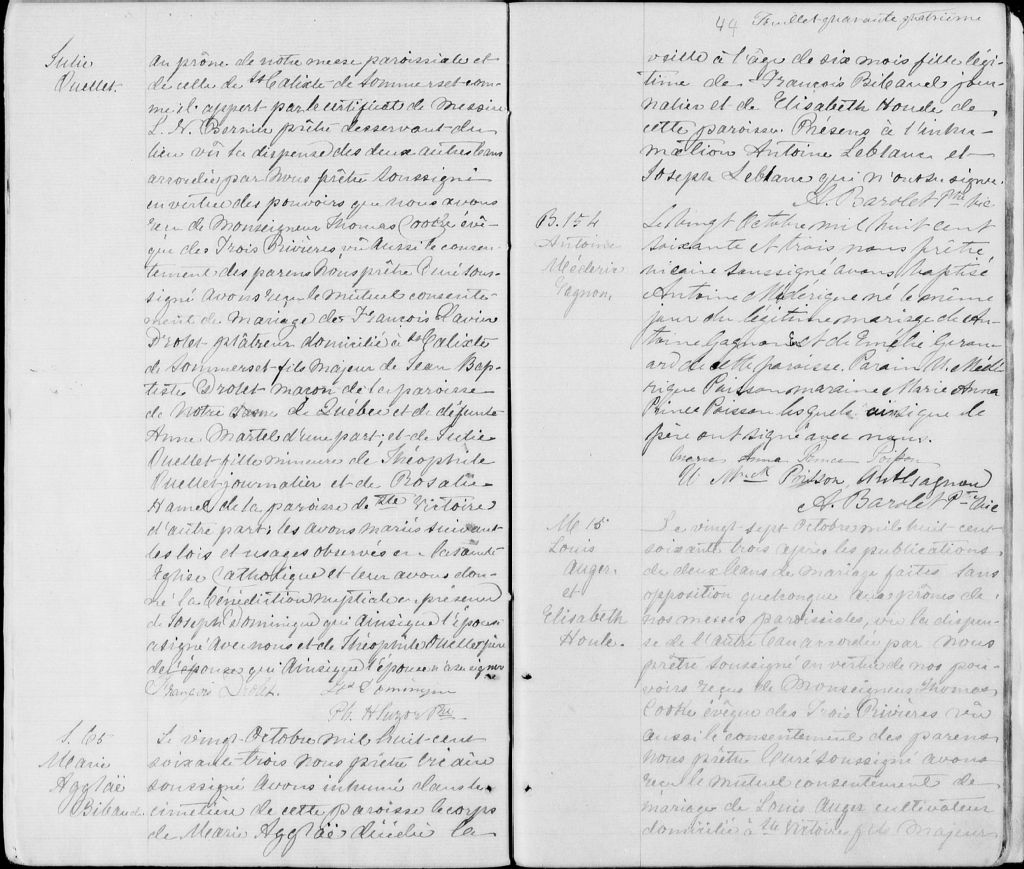 Julie
Ouellet
au prône de notre messe paroissiale et
de celle de St Calixte de Sommerset com-
me il appert par le certificat de Messire
L. N. Bernier prêtre desservant du
lieu vû la dispense des deux autres bans
accordée par Nous prêtre soussigné
en vertu des pouvoirs que nous avons
reçu de Monseigneur Thomas Cooke évê-
que des Trois Rivières vû aussi le consen-
tement des parens Nous prêtre Curé sous-
signé avons reçu le mutuel consente-
ment de mariage de François Xavier
Drolet plâtreur domicilié à St Calixte
de Sommerset fils majeur de Jean Bap-
tiste Drolet maçon de la paroisse
de Notre Dame de Québec et de défunte
Anne Martel d'une part; et de Julie
Ouellet fille mineure de Théophile
Ouellet journalier et de Rosalie
Hamel de la paroisse de Ste Victoire
d'autre part; les avons mariés suivant
les lois et usages observés en la sainte
Eglise Catholique et leur avons don-
né la bénédiction nuptiale en présence
de Joseph Domingue qui ainsi que l'époux
a signé avec nous et de Théophile Ouellet père
de l'épouse qui ainsi que l'épouse n'a su signer
François Drolet. Domingue
Ph. H Suzor Ptre
S. 65
Marie
Agglaë
Bibaud
Le vingt Octobre mil huit cent
soixante trois nous prêtre vicaire
soussigné avons inhumé dans le
cimetière de cette paroisse le corps
de Marie Agglaë décédée la
44 Feuillet quarante quatrième
veille à l'âge de six mois fille légi-
time de François Bibaud jour-
nalier et de Elisabeth Houde de
cette paroisse. Présens à l'inhu-
mation Antoine Leblanc et
Joseph Leblanc qui n'ont su signer.
A. Barolet Ptre Vic
B. 154
Antoine
Méderic
Gagnon.
Le vingt Octobre mil huit cent
soixante et trois nous prêtre
vicaire soussigné avons baptisé
Antoine Médérique né le même
jour du légitime mariage de An-
toine Gagnon et de Emélie
de cette paroisse. Parain U. Médé-
rique Poisson maraine Marie Anna
Prince Poisson lesquels ainsi que le
père ont signé avec nous.
Marie Anna Prince Poisson
U Poisson, Ant Gagnon
A. Barolet Ptre Vic
M 15
Louis
Auger.
et
Elisabeth
Houle.
Le vingt sept Octobre mil huit cent
soixante trois après les publications
de deux bans de mariage faites sans
opposition quelconque aux prônes de
nos messes paroissiales, vu la dispen-
se de l'autre ban accordée par nous
prêtre soussigné en vertu de nos pou-
voirs reçus de Monseigneur Thomas
Cooke évêque des Trois Rivières vû
aussi le consentement des parens
nous prêtre Curé soussigné avons
reçu le mutuel consentement de
mariage de Louis Auger cultivateur
domicilié à Ste Victoire fils majeur